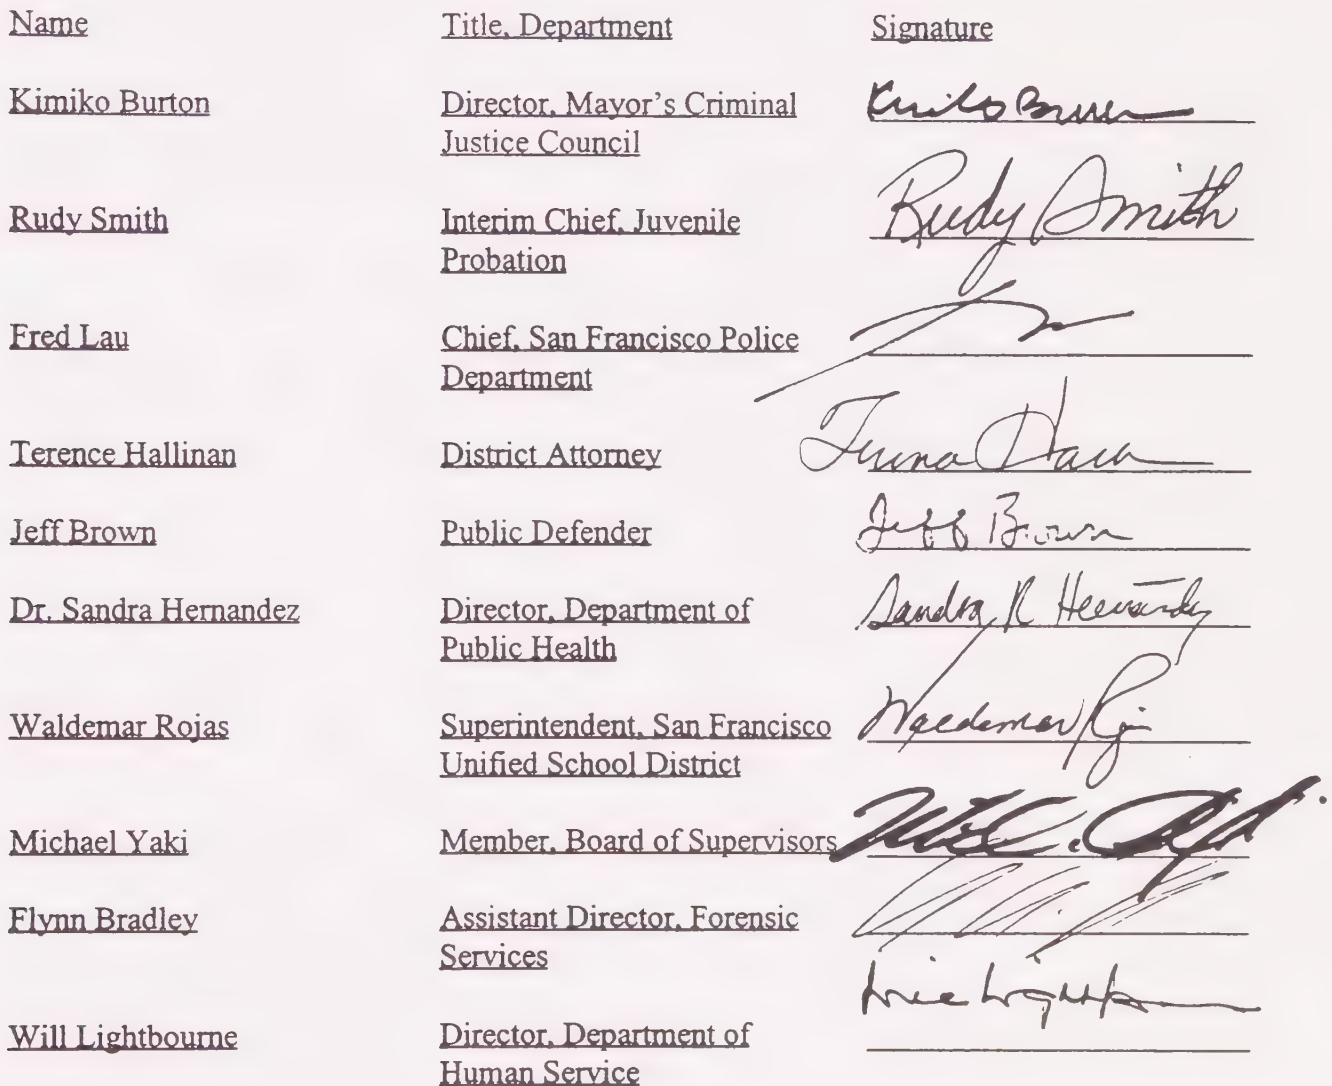 Name Title, Department Signature
Kimiko Burton Director, Mayor's Criminal
Justice Council
Rudy Smith Interim Chief, Juvenile Rudy Smith
Probation
Fred Lau Chief, San Francisco Police
Department
Terence Hallinan District Attorney
Jeff Brown Public Defender Jeff Brown
Dr. Sandra Hernandez Director, Department of Sandra R Hernandez
Public Health
Waldemar Rojas Superintendent, San Francisco Waldemar Rojas
Unified School District
Michael Yaki Member, Board of Supervisors
Flynn Bradley Assistant Director, Forensic
Services
Will Lightbourne Director, Department of
Human Service